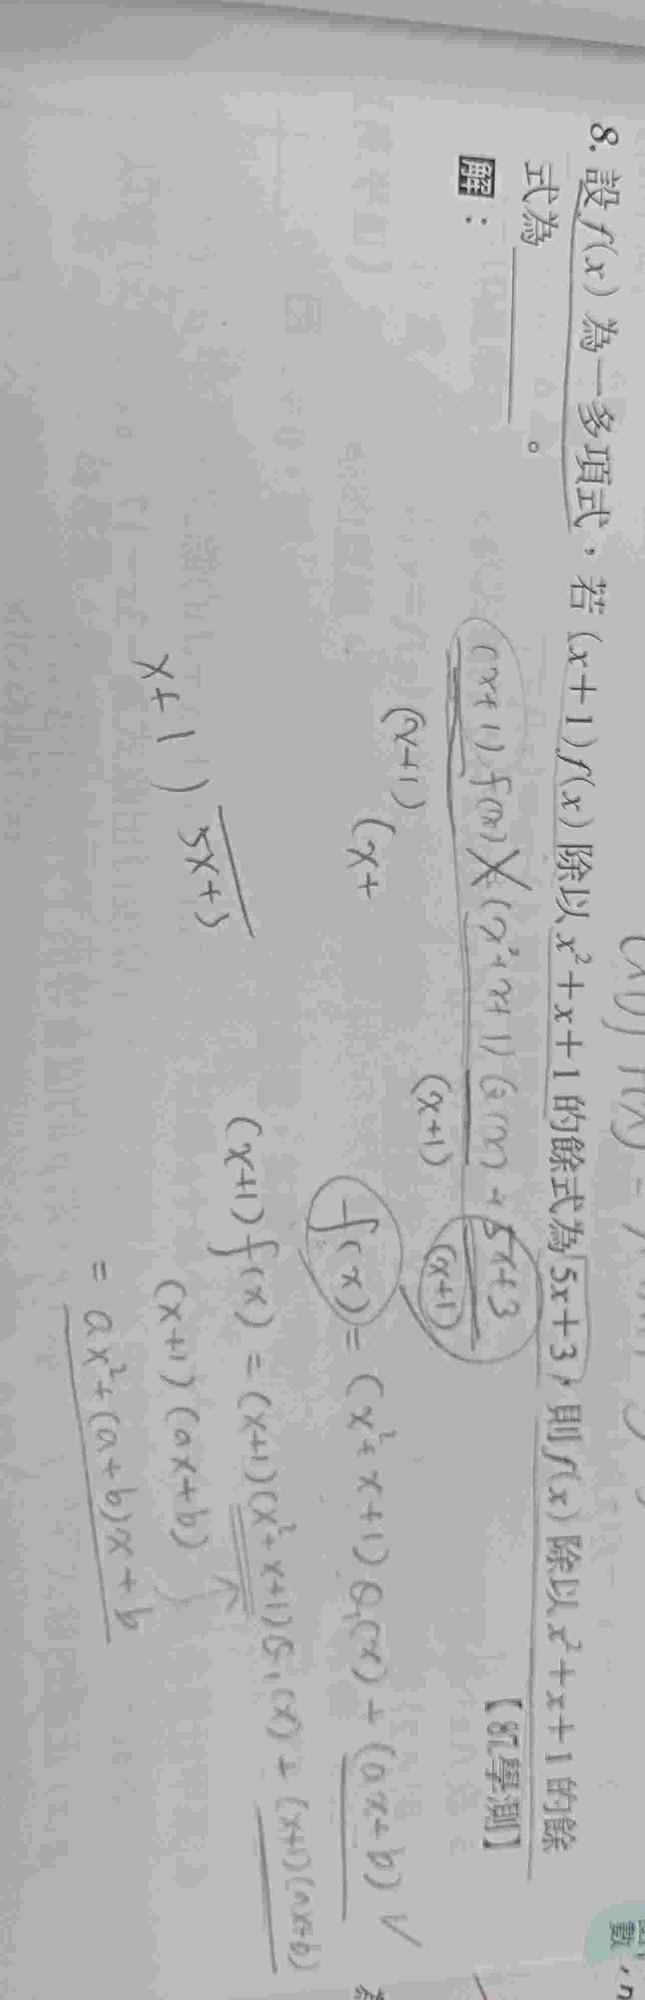 8. 設 f(x) 為一多項式，若 (x+1)f(x) 除以 x²+x+1 的餘式為 5x+3，則 f(x) 除以 x²+x+1 的餘
式為 ________ 。
【87.學測】
解：
(x+1) f(x) (x²+x+1) Q(x) + 5x+3
(x+1) (x+1) (x+1)
(x+
f(x) = (x²+x+1) Q₁(x) + (ax+b) ✓
(x+1) f(x) = (x+1)(x²+x+1) Q₁(x) + (x+1)(ax+b)
x+1 ) 5x+3
(x+1)(ax+b)
= ax²+(a+b)x+b